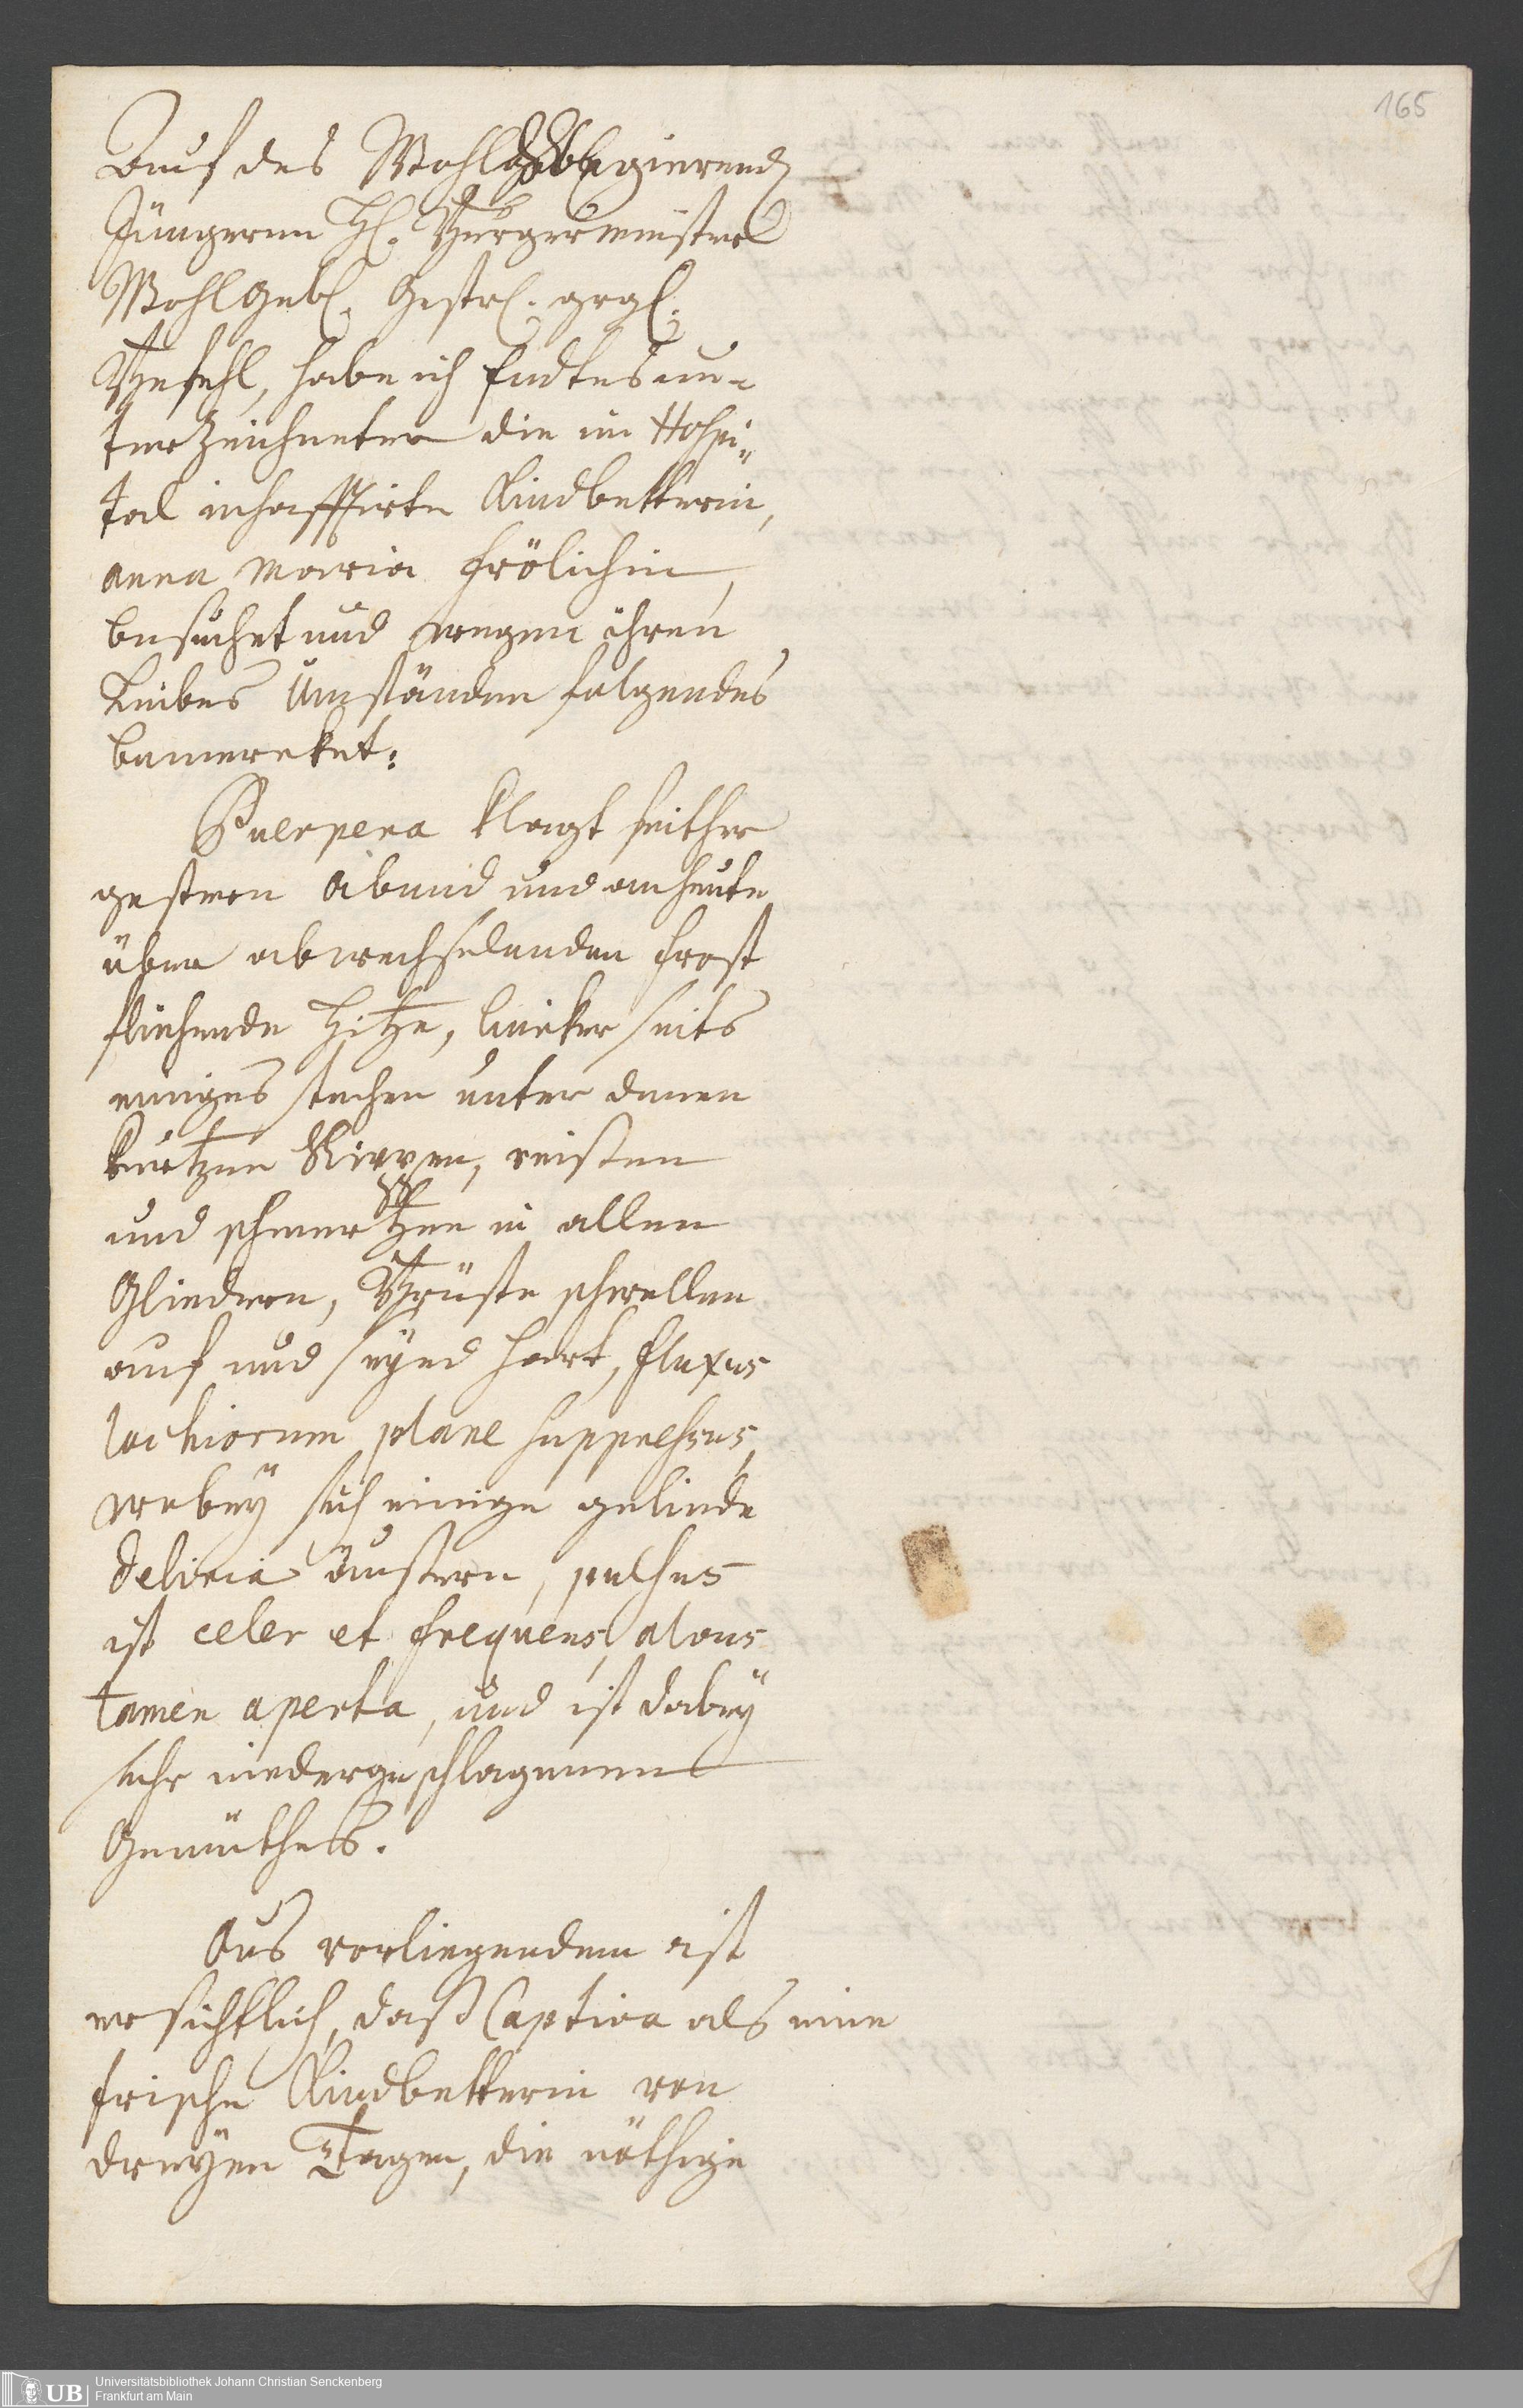 165
Auf des Wohlregierend
Jüngeren H. Burgermeisters
WohlGeb. Gestr. grgl.
Befehl, habe ich Endtes un-
terzeichneter die im Hospi-
tal inhafftirte Kindbetterin,
Anna Maria Frölichin,
besuchet und wegen ihren
Leibes Umständen folgendes
bemercket:
Puerpera klagt seither
gestern Abend und anheute
über abwechselenden Frost
fliehende Hitze, lincker seits
einiges stechen unter denen
kurtzen Rippen, reisten
und schmertzen in allen
Gliedern, Brüste schwellen
auf und seÿnd hart, fluxus
lochiorum plane suppressus,
wobeÿ sich einige gelinde
deliria äussern, pulsus
ist celer et frequens, alvus
tamen aperta, und ist dabeÿ
sehr niedergeschlagenen
Gemüthes.
Aus vorliegendem ist
ersichtlich, daß Captiva als eine
frische Kindbetterin von
dreÿen Tagen, die nöthige
UB
Universitätsbibliothek Johann Christian Senckenberg
Frankfurt am Main